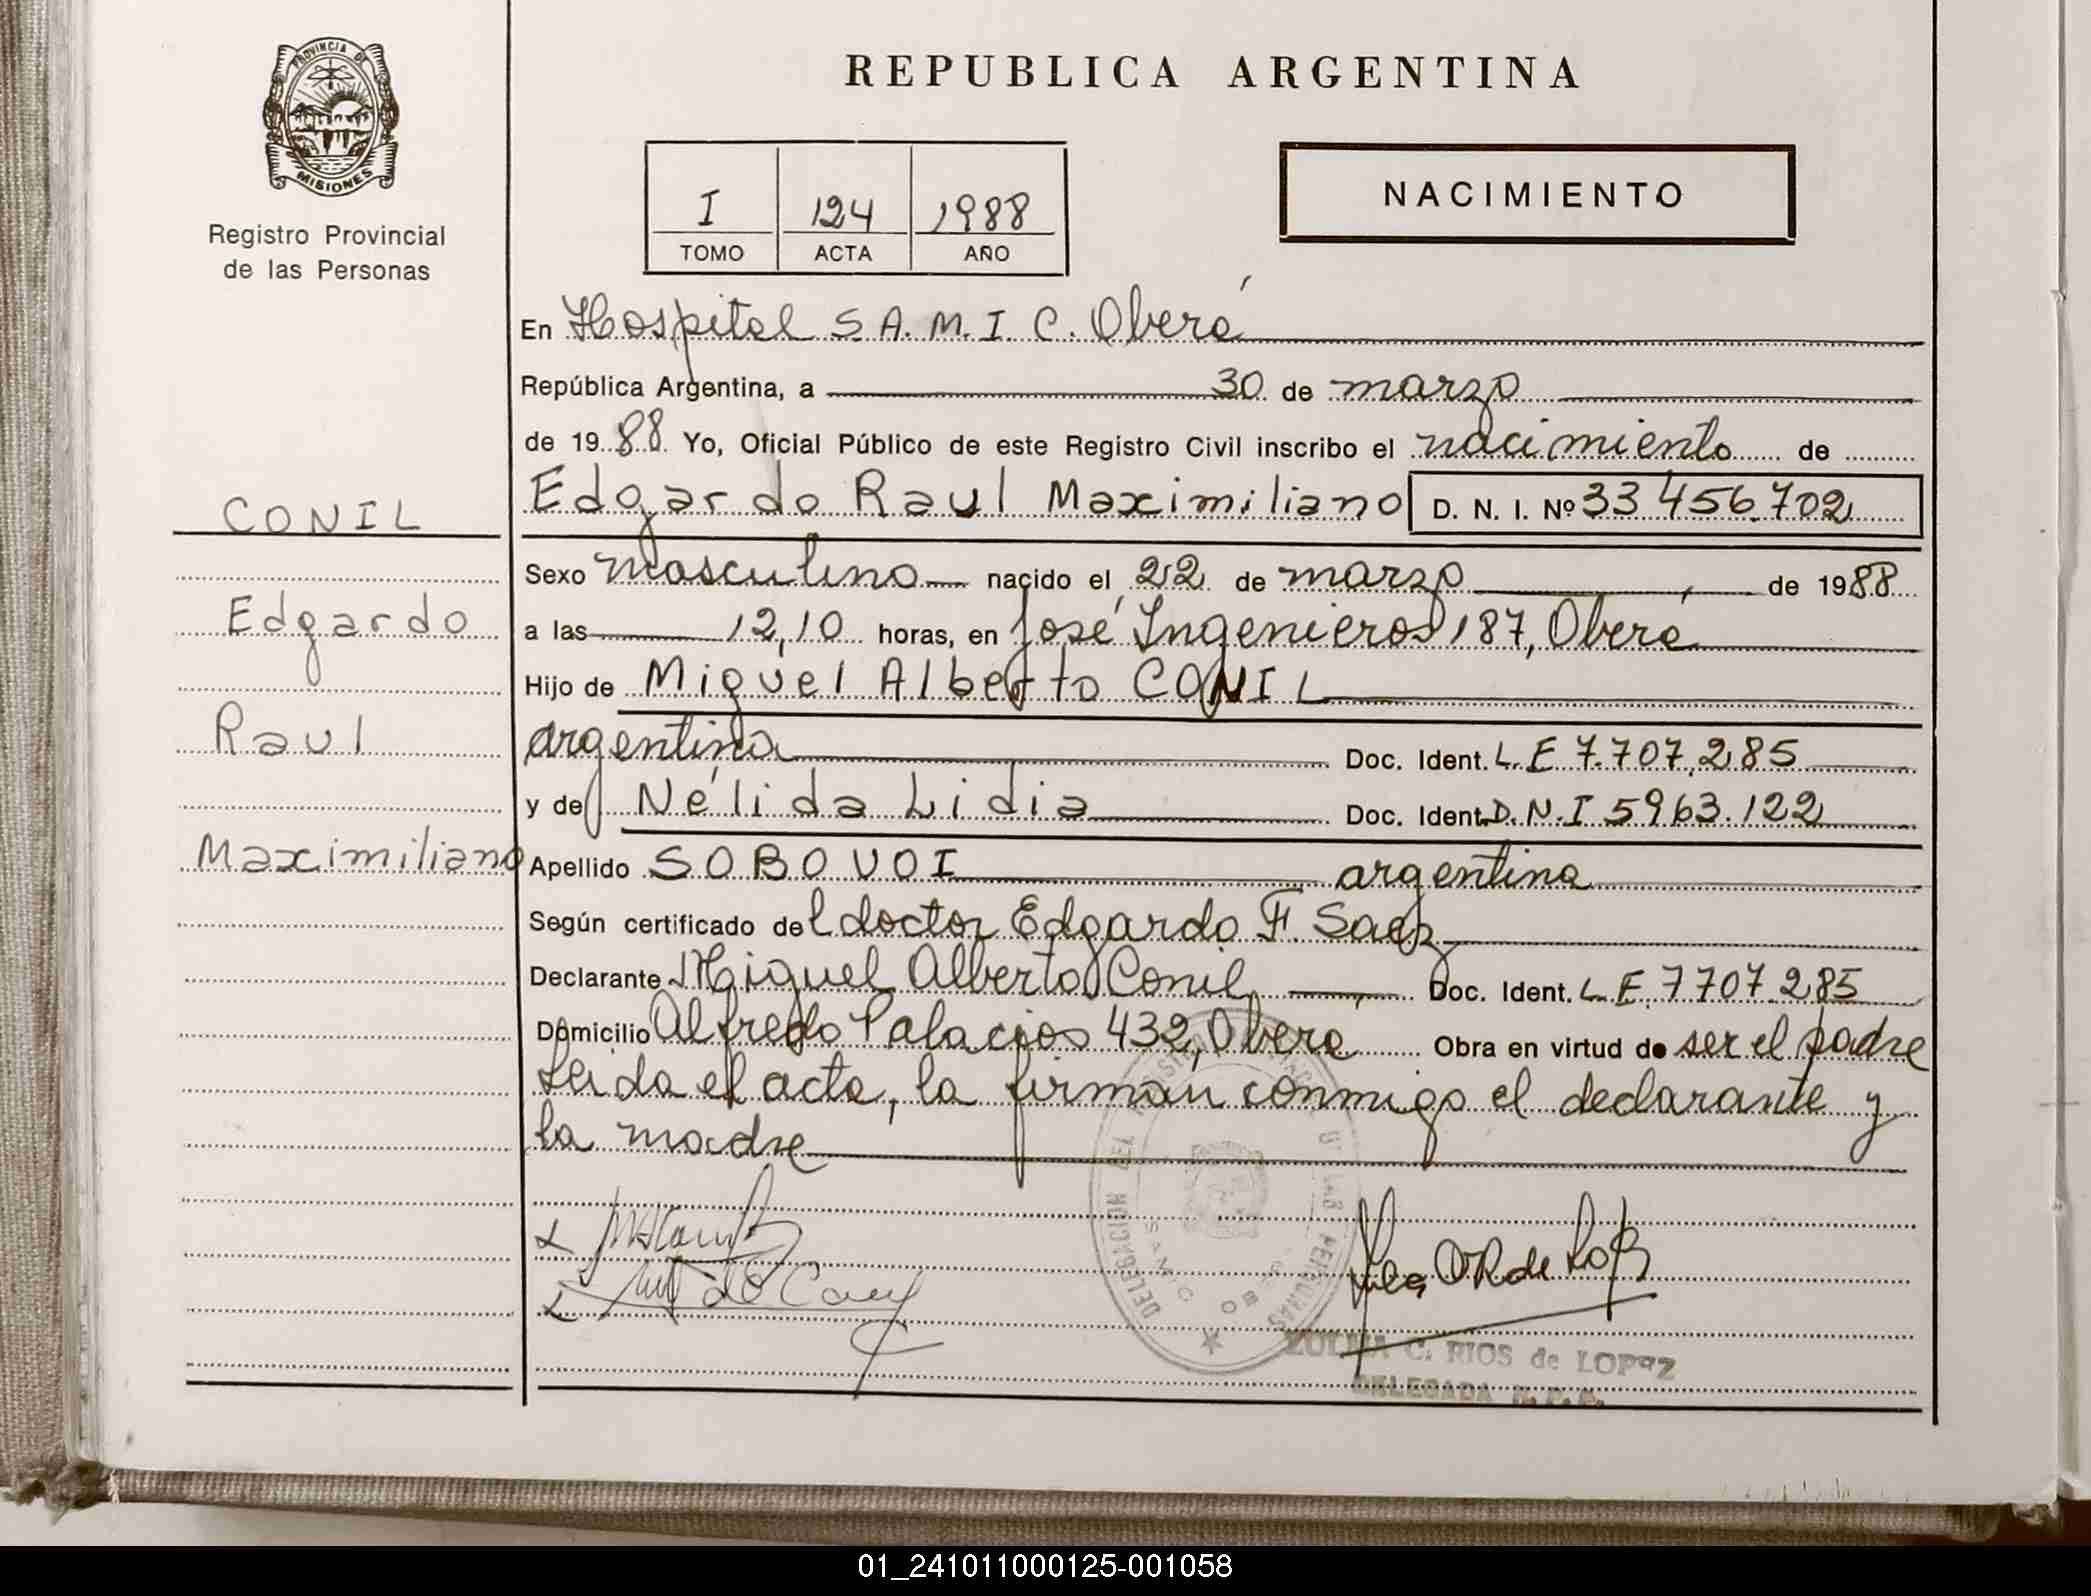 PROVINCIA DE
MISIONES
Registro Provincial
de las Personas
CONIL
Edgardo
Raul
Maximiliano
REPUBLICA ARGENTINA
I 124 1988
TOMO ACTA AÑO
NACIMIENTO
En Hospital S.A.M.I.C. Oberá
República Argentina, a 30 de marzo
de 1988 Yo, Oficial Público de este Registro Civil inscribo el nacimiento de
Edgardo Raul Maximiliano D. N. I. Nº 33 456.702
Sexo masculino nacido el 22 de marzo de 1988
a las 12,10 horas, en José Ingenieros 187, Oberá
Hijo de Miguel Alberto CONIL
argentina Doc. Ident. L.E 7.707.285
y de Nélida Lidia Doc. Ident. D.N.I 5963.122
Apellido SOBOVOI argentina
Según certificado del doctor Edgardo F. Saez
Declarante Miguel Alberto Conil Doc. Ident. L.E. 7707.285
Domicilio Alfredo Palacios 432, Obera Obra en virtud de ser el padre
Leida el acta, la firman conmigo el declarante y
la madre
DELEGACION DEL
PERSONAS
ZULMA C. RIOS de LOPEZ
DELEGADA R.P.P.
01_241011000125-001058